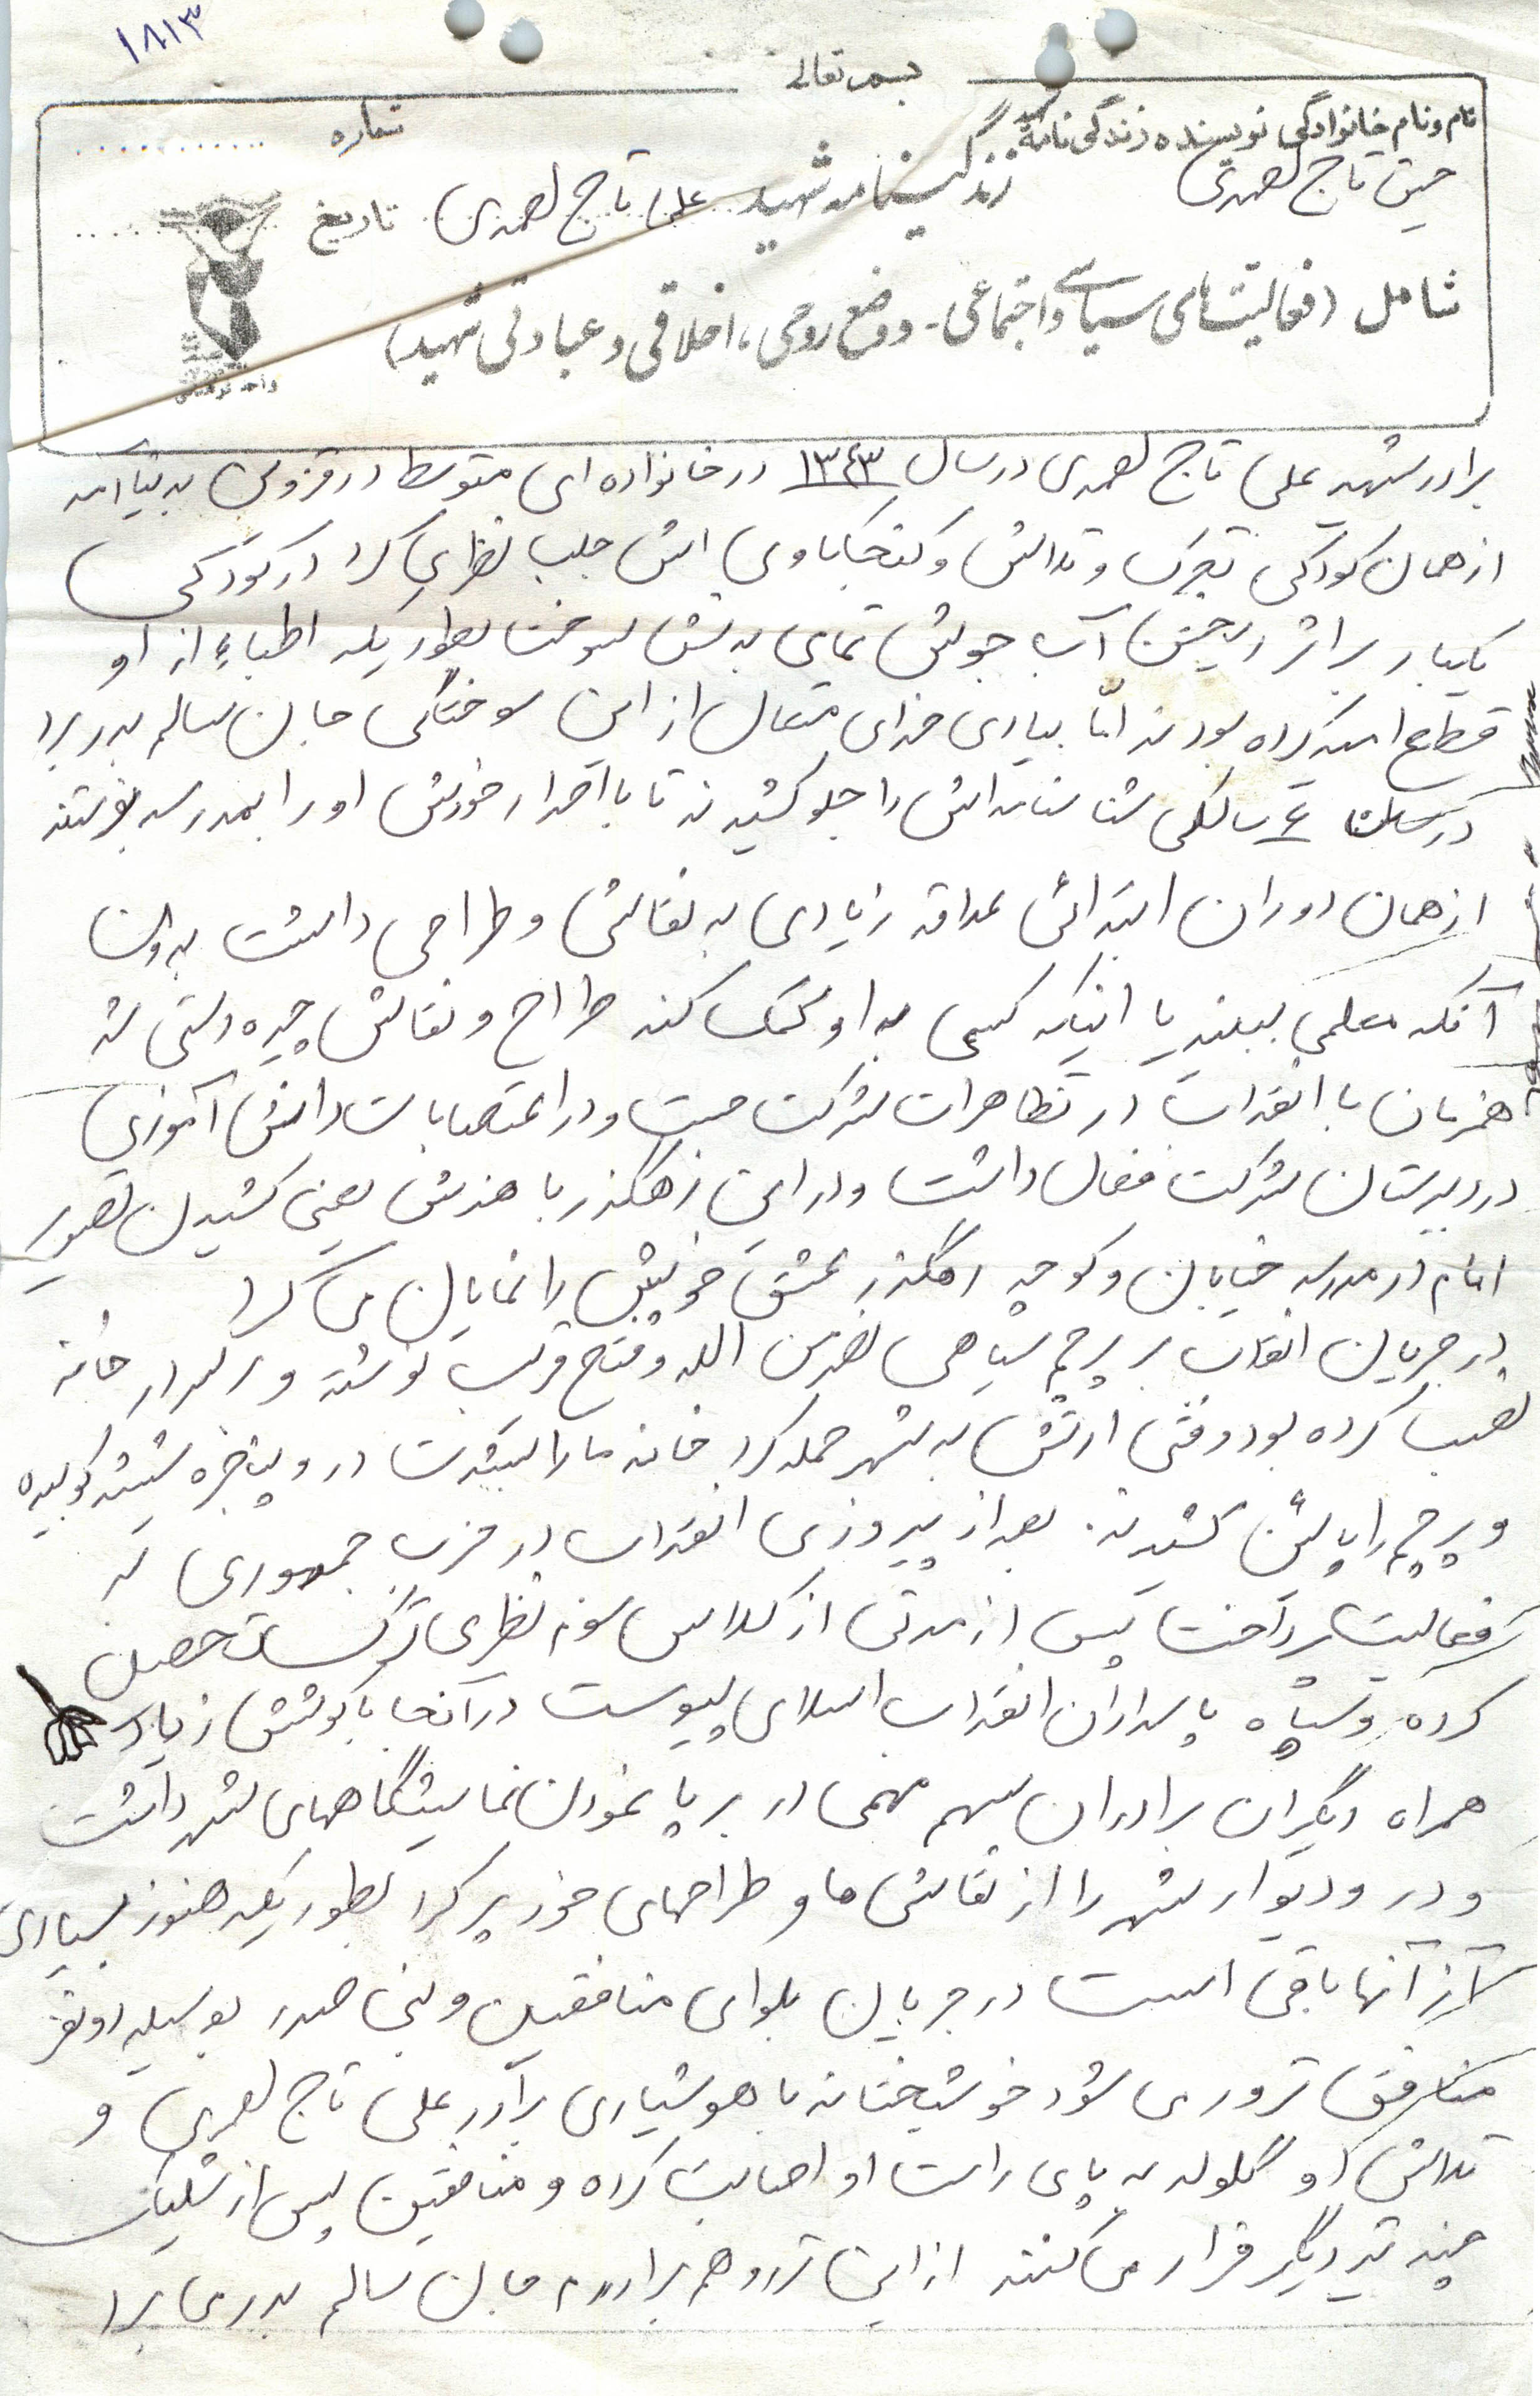 ۱۸۱۳
بسمه تعالی
نام و نام خانوادگی نویسنده زندگی نامه
شماره ...........
حسن تاج احمدی
زندگینامه شهید علی تاج احمدی
تاریخ ...........
شامل (فعالیتهای سیاسی و اجتماعی - وضع روحی، اخلاقی و عبادتی شهید)
واحد فرهنگی
برادر شهید علی تاج احمدی در سال ۱۳۴۳ در خانواده ای متوسط در قزوین بدنیا آمد
از همان کودکی تحرک و تلاش و کنجکاوی اش جلب نظر می کرد در کودکی
یکبار بر اثر ریختن آب جوش تمامی بدنش سوخت بطوریکه اطباء از او
قطع امید کرده بودند امّا بیاری خدای متعال از این سوختگی جان سالم بدر برد
در ۶ سالگی شناسنامه اش را جلو کشیدند تا با اصرار خودش او را بمدرسه بفرستند
از همان دوران ابتدائی علاقه زیادی به نقاشی و طراحی داشت بدون
آنکه معلمی ببیند یا اینکه کسی به او کمک کند طراح و نقاش چیره دستی شد
همزمان با انقلاب در تظاهرات شرکت جست و در اعتصابات دانش آموزی
در دبیرستان شرکت فعال داشت و در این رهگذر با هنرش یعنی کشیدن تصویر
امام در مدرسه خیابان و کوچه رهگذر عشق خویش را نمایان می کرد
در جریان انقلاب بر پرچم سیاهی نصر من الله و فتح قریب نوشته و بر سر در خانه
نصب کرده بود وقتی ارتش به شهر حمله کرد خانه ما را بشدت در و پنجره شیشه کوبیده
و پرچم را پائین کشیدند. بعد از پیروزی انقلاب در حزب جمهوری به
فعالیت پرداخت پس از مدتی از کلاس سوم نظری ترک تحصیل
کرده و سپاه پاسداران انقلاب اسلامی پیوست در آنجا با کوشش زیاد
همراه دیگران برادران سهم مهمی در برپا نمودن نمایشگاههای شهر داشت
و در و دیوار شهر را از نقاشی ها و طراحهای خود پر کرد بطوریکه هنوز بسیاری
از آنها باقی است در جریان بلوای منافقین و بنی صدر بوسیله دو نفر
منافق ترور می شود خوشبختانه با هوشیاری برادر علی تاج احمدی و
تلاش او گلوله به پای راست او اصابت کرده و منافقین پس از شلیک
چند تیر دیگر فرار می کنند از این ترور هم برادرم جان سالم بدر می برد